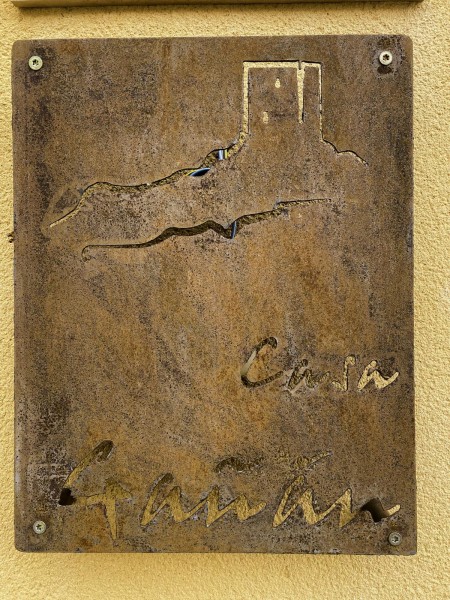 Casa
Gañán